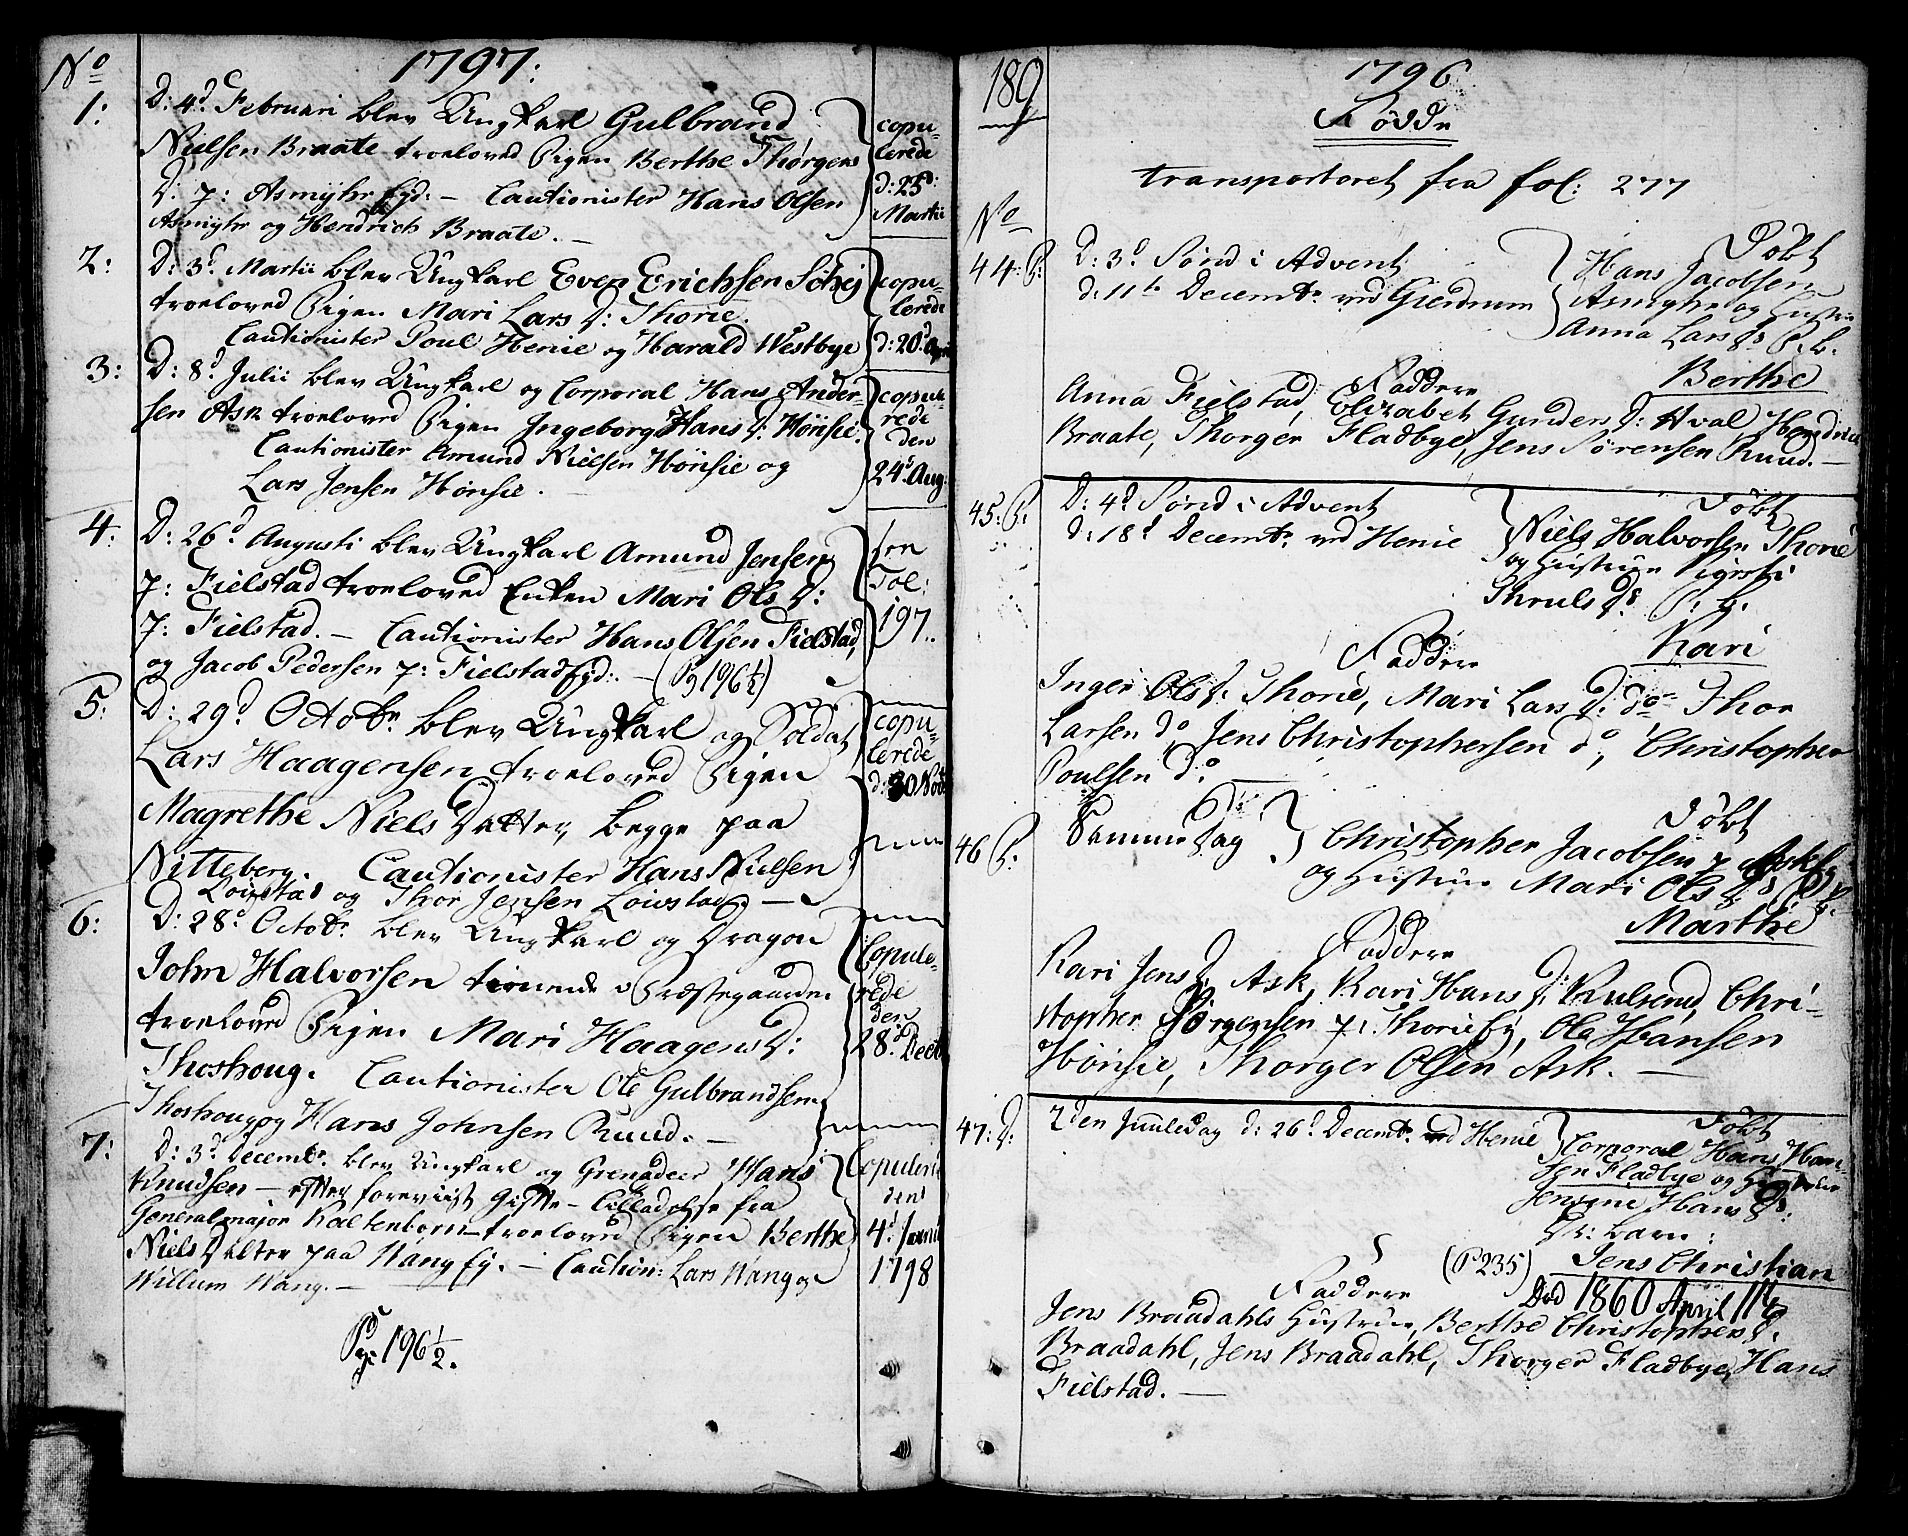 No 1797:
1: D: 4d Februari blev Ungkarl Gulbrand
Nielsen Braate troeloved Pigen Berthe Thorgens
D: 7: Asmyhr Eyd. — Cautionister Hans Olsen
Asmyhr og Hendrich Braate. —
copu-
lerede
d: 25d:
Martii
2: D: 3d Martii blev Ungkarl Even Erichsen
troeloved Pigen Mari Lars D: Thorie.
Cautionister Poul Henie og Harald Westbye
copu-
lerede
d: 20d April
3: D: 8d Julii blev Ungkarl og Corporal Hans Ander-
sen Ask troeloved Pigen Ingeborg Hans D: Hønsie.
Cautionister Amund Nielsen Hønsie og
Lars Jensen Hønsie. —
copule-
rede
den
24d Aug:
4: D: 26d Augusti blev Ungkarl Amund Jensen
7: Fielstad troeloved Enken Mari Ols D:
7: Fielstad. — Cautionister Hans Olsen Fielstad,
og Jacob Pedersen 7: Fielstad Eyd: — (Pg 196 1/2)
see
Fol:
197.
5: D: 29d Octobr blev Ungkarl og Soldat
Lars Haagensen troeloved Pigen
Magrethe Niels Datter, begge paa
Nitteberg. Cautionister Hans Nielsen
Løvstad og Thor Jensen Løvstad. —
copu-
lerede
d: 30 Novb
6: D: 28d Octobr blev Ungkarl og Dragon
John Halvorsen tienende i Præstegaarden
troeloved Pigen Mari Haagens D:
Thoshoug. Cautionister Ole Gulbrandsen
Thoshoug og Hans Johnsen Ruud. —
Copule-
rede
den
28d Decb
7: D: 3d Decembr blev Ungkarl og Grenadeer Hans
Knudsen — efter foreviist Gifte-Tilladelse fra
Generalmajor Kaltenborn — troeloved Pigen Berthe
Niels Datter paa Wang Ey. — Caution: Lars Wang og
Willum Wang. —
Copulerede
den
4d Januarii
1798
Pg: 196 1/2.
189 1796
Fødde
transporteret fra fol: 277
No
44: P: D: 3d Sønd i Advent
d: 11te Decembr ved Gierdrum
Døbt
Hans Jacobsen
Asmyhr og Hustrue
Anna Lars Ds P. B.
Berthe
Faddere
Anna Fielstad, Elisabet Gunders D: Hval, Hendrich
Braate, Thorger Fladbye, Jens Sørensen Ruud. —
45: P: D: 4d Sønd i Advent
d: 18d Decembr ved Henie
Døbt
Niels Halvorsen Thorie
og Hustrue Sigrethi
Thruls Ds P. B.
Kari
Faddere
Inger Ols D: Thorie, Mari Lars D: do Thor
Larsen do, Jens Christophersen do, Christopher
Poulsen do —
46 P: Samme Dag
Døbt
Christopher Jacobsen 7 Ask Ey
og Hustrue Mari Ols Ds P. B.
Marthe
Faddere
Kari Jens D. Ask, Kari Hans D: Kulsrud, Chri-
stopher Jørgensen 7: Thorie Ey, Ole Hansen
Hønsie, Thorger Olsen Ask. —
47: D: 2den Juuledag d: 26d Decembr ved Henie
Døbt
Corporal Hans Han-
sen Fladbye og Hustrue
Hans Ds:
Barn:
(P 235) Jens Christian
Død 1860 April 11te
Faddere
Jens Braadahls Hustrue, Berthe Christophers D:
Braadahl, Jens Braadahl, Thorger Fladbye, Hans
Fielstad. —